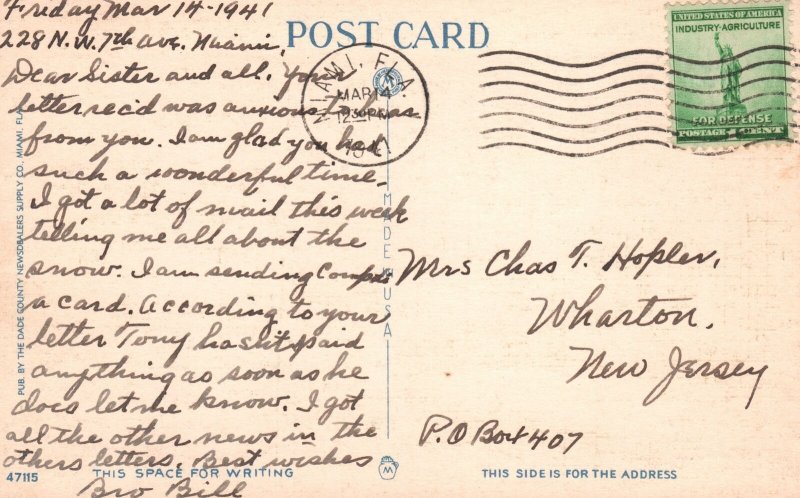 Friday Mar 14-1941
228 N.W. 7th Ave. Miami,
Dear Sister and all. Your
letter rec'd was anxious to hear
from you. I am glad you had
such a wonderful time.
I got a lot of mail this week
telling me all about the
snow. I am sending
a card. According to your
letter Tony hasn't paid
anything as soon as he
does let me know. I got
all the other news in the
others letters. Best wishes
Bro Bill
POST CARD
MIAMI, FLA.
MAR 14
12 30 PM
1941
UNITED STATES OF AMERICA
INDUSTRY-AGRICULTURE
FOR DEFENSE
POSTAGE 1 CENT
Mrs Chas T. Hopler,
Wharton,
New Jersey
P.O Box 407
PUB. BY THE DADE COUNTY NEWSDEALERS SUPPLY CO., MIAMI, FLA.
MADE IN USA
47115
THIS SPACE FOR WRITING
M
THIS SIDE IS FOR THE ADDRESS